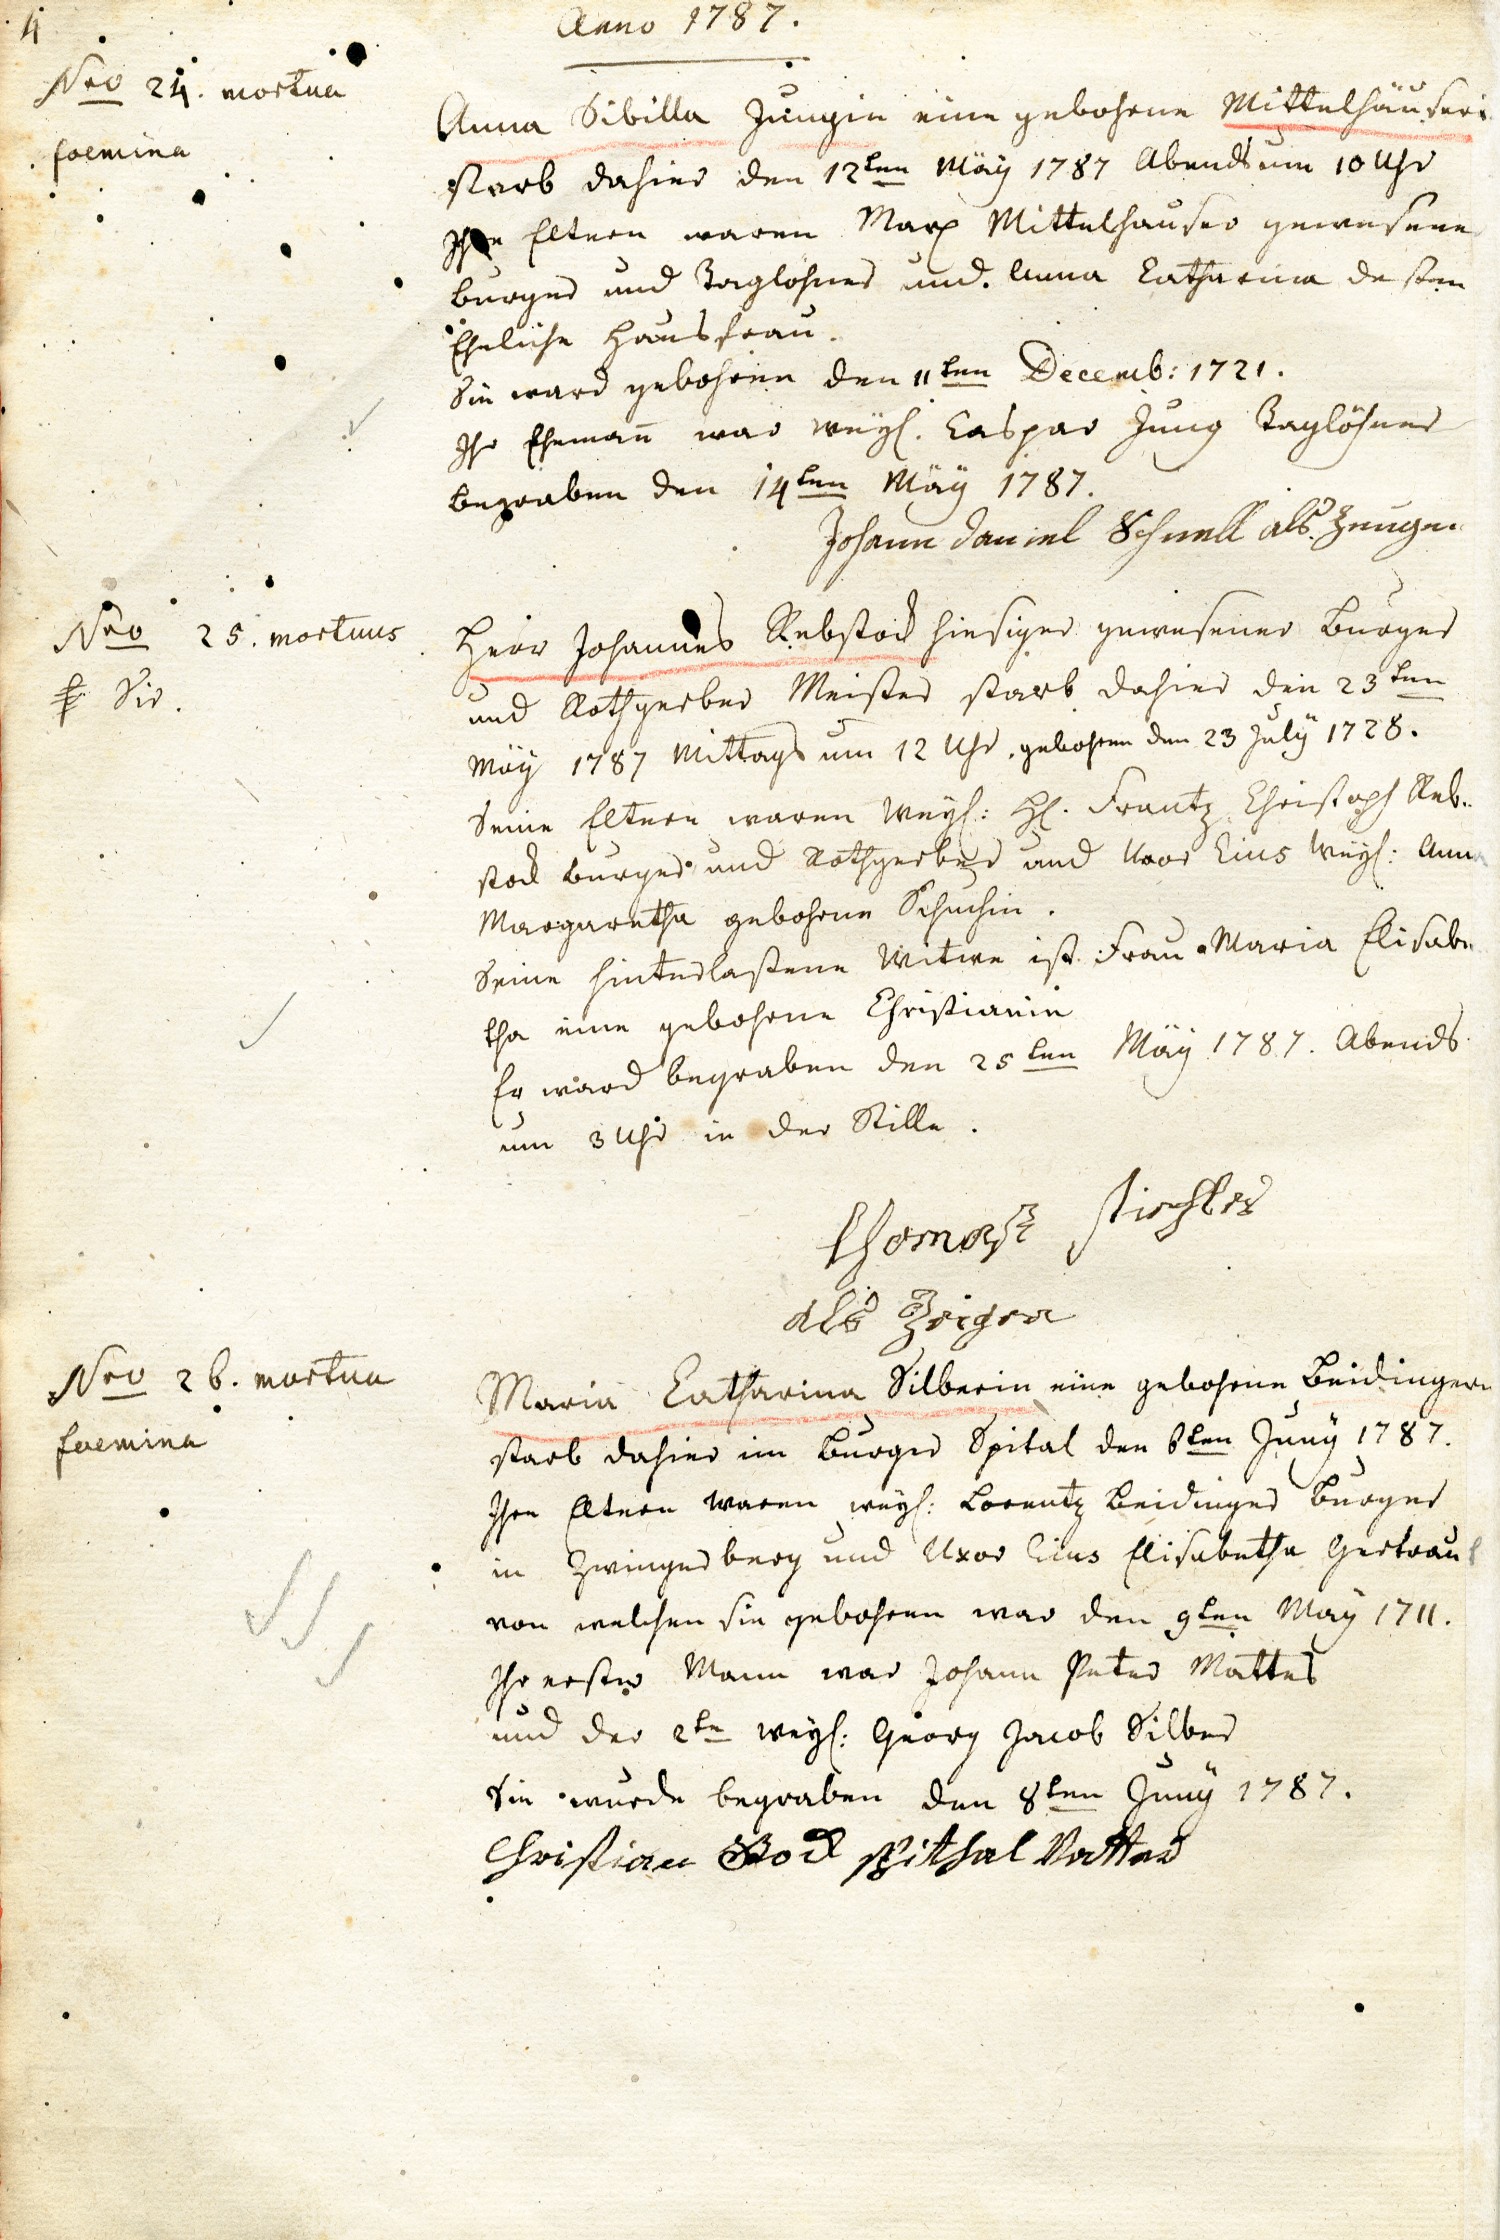 4
Anno 1787.
Nro 24. mortua
foemina
Anna Sibilla Jungin eine gebohrne Mittelhäuseri
starb dahier den 12ten Mäÿ 1787 Abends um 10 Uhr
Ihre Eltern waren Marx Mittelhauser gewesene
burger und Taglohner und. Anna Catharina desßen
Eheliche Hausfrau.
Sie ward gebohren den 11ten Decemb: 1721.
Ihr Ehemañ war weyl. Caspar Jung Taglöhner
begraben den 14ten Mäÿ 1787.
Johann Daniel Schnell als Zeuge
Nro 25. mortuus
Sir.
Herr Johannes Rebstock hiesiger gewesener Burger
und Rothgerber Meister starb dahier den 23ten
Mäÿ 1787 Mittags um 12 Uhr. gebohren den 23 Julÿ 1728.
Seine Eltern waren Weyl: H. Frantz Christoph Reb-
stock burger und Rothgerber und Uxor Eius Weyl: Anna
Margaretha gebohrne Schuchin.
Seine hinterlaßene Witwe ist Frau Maria Elisabe
tha eine gebohrne Christianin
Er ward begraben den 25ten Mäÿ 1787. Abends
um 3 Uhr in der Stille.
Thomas Stichter
als Zeigen
Nro 26. mortua
foemina
Maria Catharina Silberin eine gebohrne Beidingern
starb dahier im Burger Spital den 6ten Junÿ 1787.
Ihre Eltern waren weyl: Lorentz Beidinger Burger
in Zwingerberg und Uxor Eius Elisabetha Gertraut
von welchen sie gebohren war den 9ten May 1711.
Ihr erster Mann war Johann Peter Mattes
und der 2te weyl: Georg Jacob Silber
Sie wurde begraben den 8ten Junÿ 1787.
Christian Bock spithal Vatter